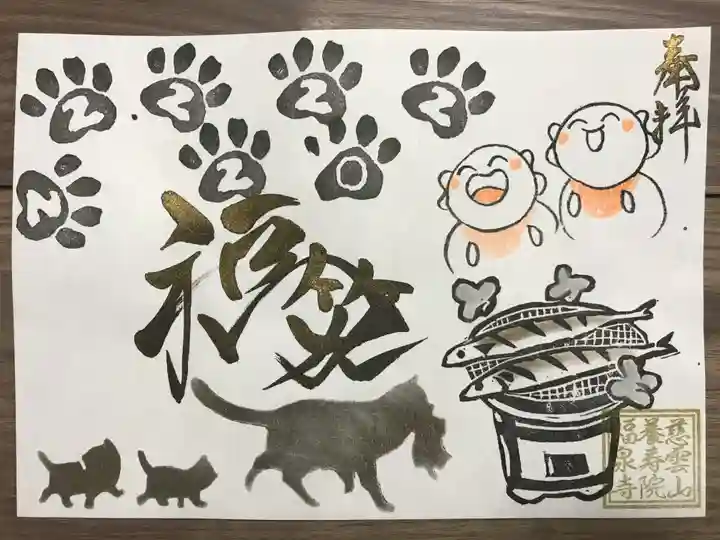 奉拝
2 2 2 2
2 2 0
福笑
慈雲山
養寿院
福泉寺